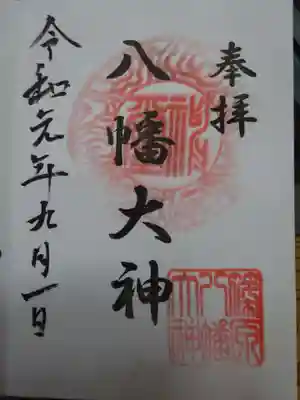 奉拝
八幡大神
令和元年九月一日